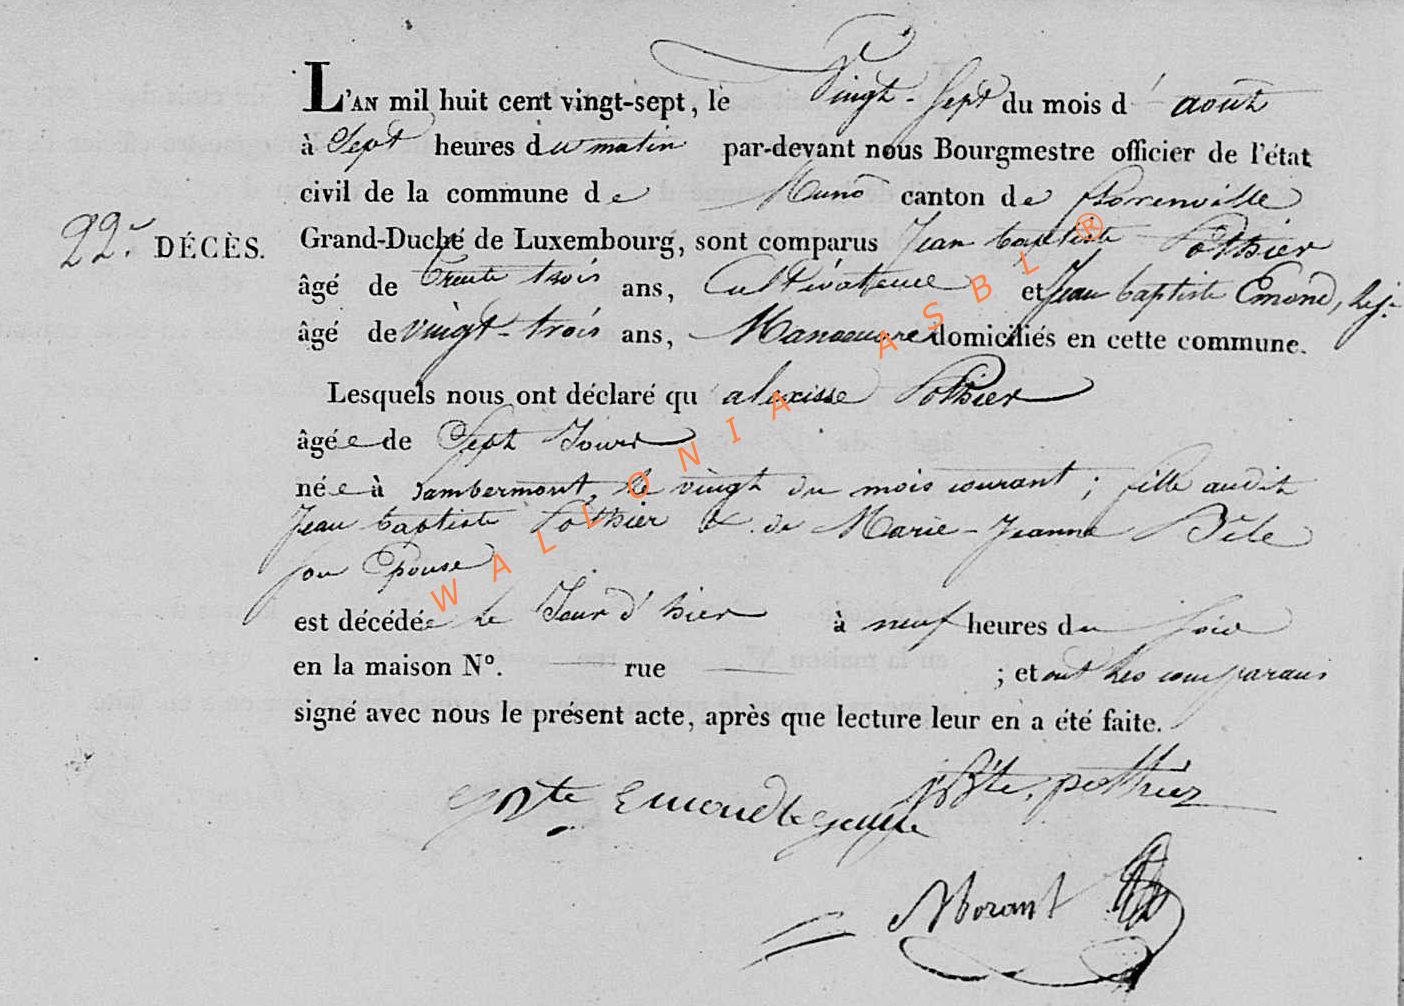 L'AN mil huit cent vingt-sept, le Vingt-Sept du mois d' août
à Sept heures du matin par-devant nous Bourgmestre officier de l'état
civil de la commune de Muno canton de florenville
22e DÉCÈS. Grand-Duché de Luxembourg, sont comparus Jean baptiste Pothier
âgé de trente trois ans, Cultivateur et Jean baptiste Emond,
âgé de vingt-trois ans, Manoeuvre domiciliés en cette commune.
Lesquels nous ont déclaré qu' alexisse Pothier
âgée de Sept Jours
née à Lambermont, le vingt du mois courant ; fille audit
Jean baptiste Pothier & de Marie-Jeanne Bêle
son Epouse
est décédée le Jour d'hier à neuf heures du soir
en la maison N°. rue ; et ont les comparans
signé avec nous le présent acte, après que lecture leur en a été faite.
jBte, pothier
Bte Emond le jeune
Morant
WALLONIA ASBL ®